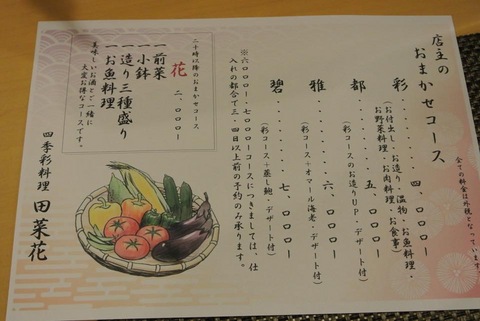 店主の
おまかせコース
全ての料金は外税となっています。
彩・・・・・・・・四、〇〇〇ー
(お付出し・お造り・温物・お魚料理・
お野菜料理・お肉料理・お食事)
都・・・・・・・・五、〇〇〇ー
(彩コースのお造りUP・デザート付)
雅・・・・・・・・六、〇〇〇ー
(彩コース+オマール海老・デザート付)
碧・・・・・・・・七、〇〇〇ー
(彩コース+蒸し鮑・デザート付)
※六〇〇〇ー・七〇〇〇ーコースにつきましては、仕
入れの都合で三、四日以上前の予約のみ承ります。
二十時以降のおまかせコース
花 二、〇〇〇ー
一前菜
一小鉢
一造り三種盛り
一お魚料理
美味しいお酒とご一緒に
大変お得なコースです。
四季彩料理 田菜花